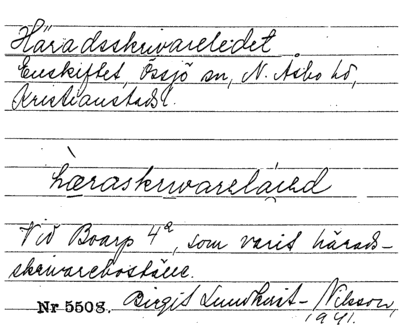 Häradsskrivareledet
Enskiftet, Össjö sn, N. Åsbo hd,
Kristianstads l.
hæraskrivarelá̱ed
Vid Boarp 4ª, som varit härads-
skrivareboställe.
Nr 5508. Birgit Lundkvist-Nilsson,
1941.